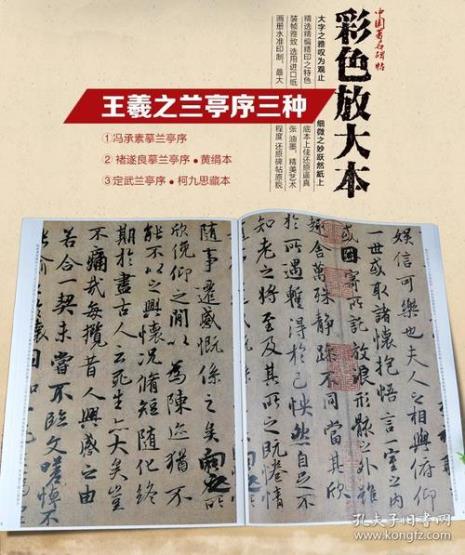 中国著名碑帖
彩色放大本
大字之雅叹为观止
细微之妙跃然纸上
精选精编精印之特色
底本上佳还原逼真
装帧雅致 选用进口纸
张 油墨，精美艺术
画册水准印制，最大
程度 还原碑帖原貌
王羲之兰亭序三种
①冯承素摹兰亭序
②褚遂良摹兰亭序·黄绢本
③定武兰亭序·柯九思藏本
娱信可樂也夫人之相與俯仰
一世或取諸懷抱悟言一室之内
或因寄所託放浪形骸之外雖
趣舍萬殊静躁不同當其欣
於所遇暫得於己怏然自足不
知老之將至及其所之既惓情
隨事遷感慨係之矣向之所
欣俛仰之間以爲陳迹猶不
能不以之興懷況脩短隨化終
期於盡古人云死生亦大矣豈
不痛哉每攬昔人興感之由
若合一契未嘗不臨文嗟悼不
孔夫子旧书网
www.kongfz.com